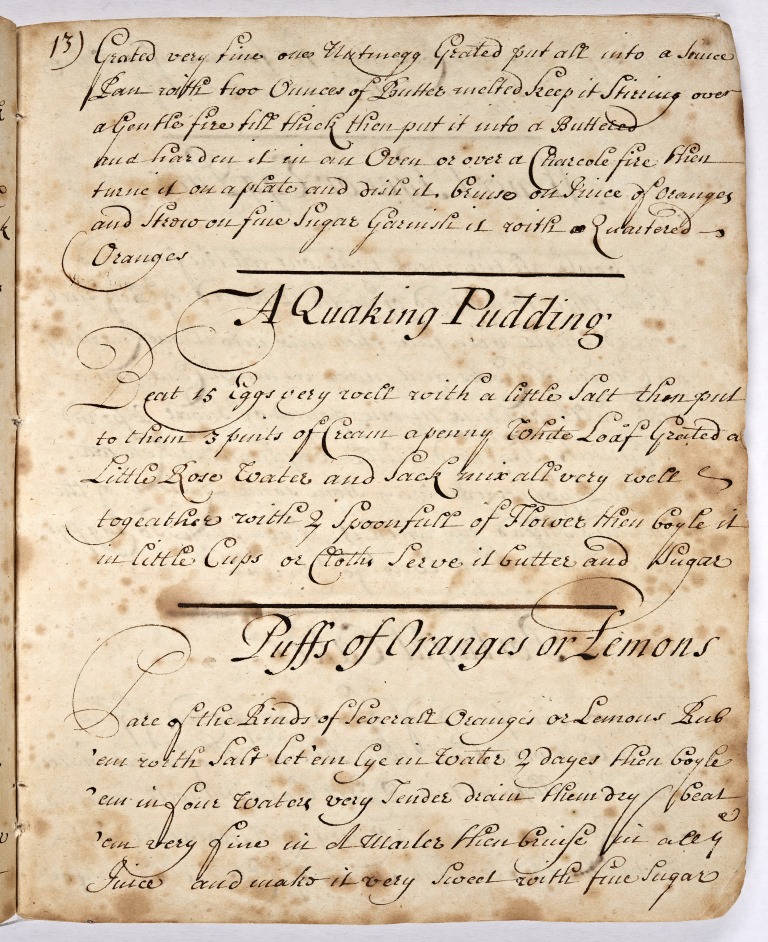 13) Grated very fine one Nutmegg Grated put all into a Sauce
Pan with two Ounces of Butter melted Keep it Stirring over
a Gentle fire till thick then put it into a Buttered
and harden it in an Oven or over a Charcole fire then
turne it on a plate and dish it, bruise on Juice of Oranges
and Strow on fine Sugar Garnish it with Quartered
Oranges
A Quaking Pudding
Beat 15 Eggs very well with a little Salt then put
to them 3 pints of Cream a penny White Loaf Grated a
Little Rose Water and Sack mix all very well
togeather with 2 Spoonfull of Flower then boyle it
in little Cups or Cloths Serve it butter and Sugar
Puffs of Oranges or Lemons
Pare of the Rinds of Severall Oranges or Lemons Rub
'em with Salt let 'em Lye in Water 2 dayes then boyle
'em in four Waters very Tender drain them dry beat
'em very fine in A Marter then bruise in all ye
Juice and make it very Sweet with fine Sugar